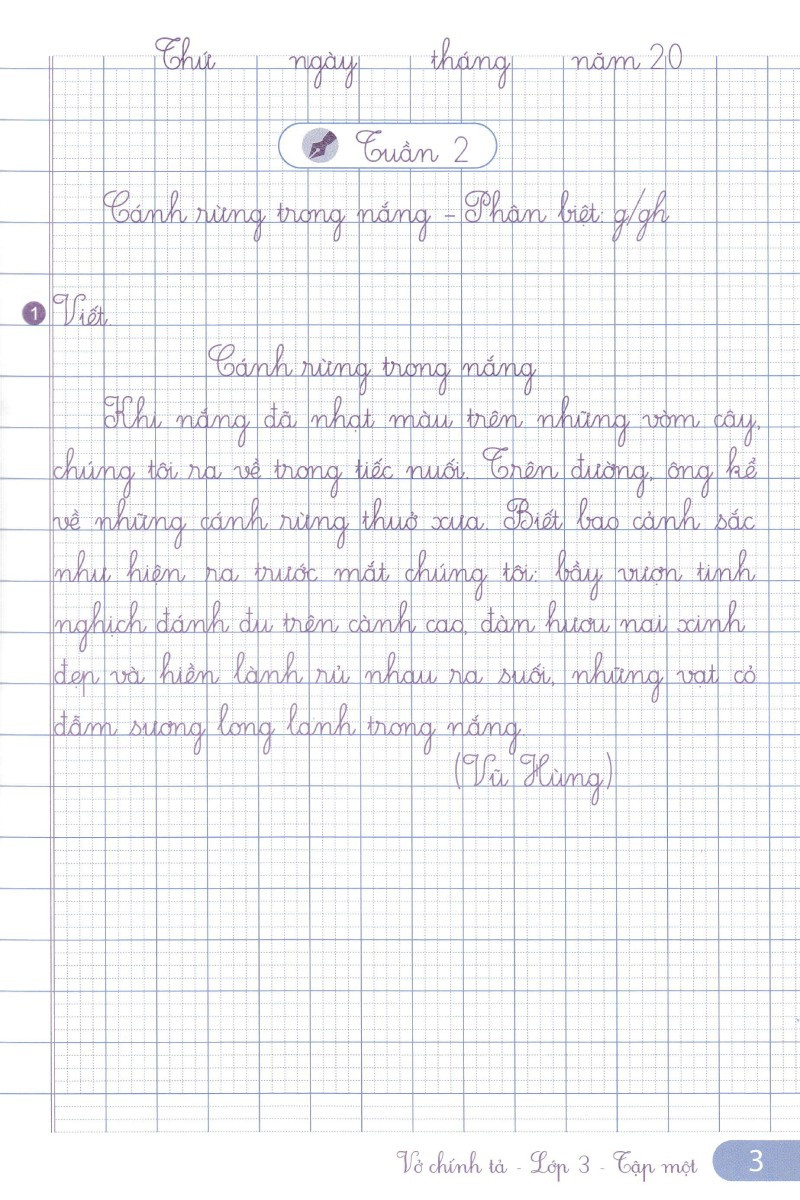 Thứ ngày tháng năm 20
Tuần 2
Cánh rừng trong nắng – Phân biệt: g/gh
1 Viết
Cánh rừng trong nắng
Khi nắng đã nhạt màu trên những vòm cây,
chúng tôi ra về trong tiếc nuối. Trên đường, ông kể
về những cánh rừng thuở xưa. Biết bao cảnh sắc
như hiện ra trước mắt chúng tôi: bầy vượn tinh
nghịch đánh đu trên cành cao, đàn hươu nai xinh
đẹp và hiền lành rủ nhau ra suối, những vạt cỏ
đẫm sương long lanh trong nắng.
(Vũ Hùng)
Vở chính tả - Lớp 3 - Tập một 3